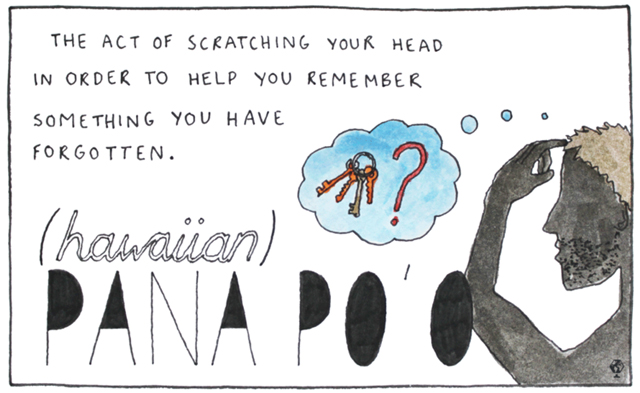 THE ACT OF SCRATCHING YOUR HEAD
IN ORDER TO HELP YOU REMEMBER
SOMETHING YOU HAVE
FORGOTTEN.
?
(hawaiian)
PANA PO'O